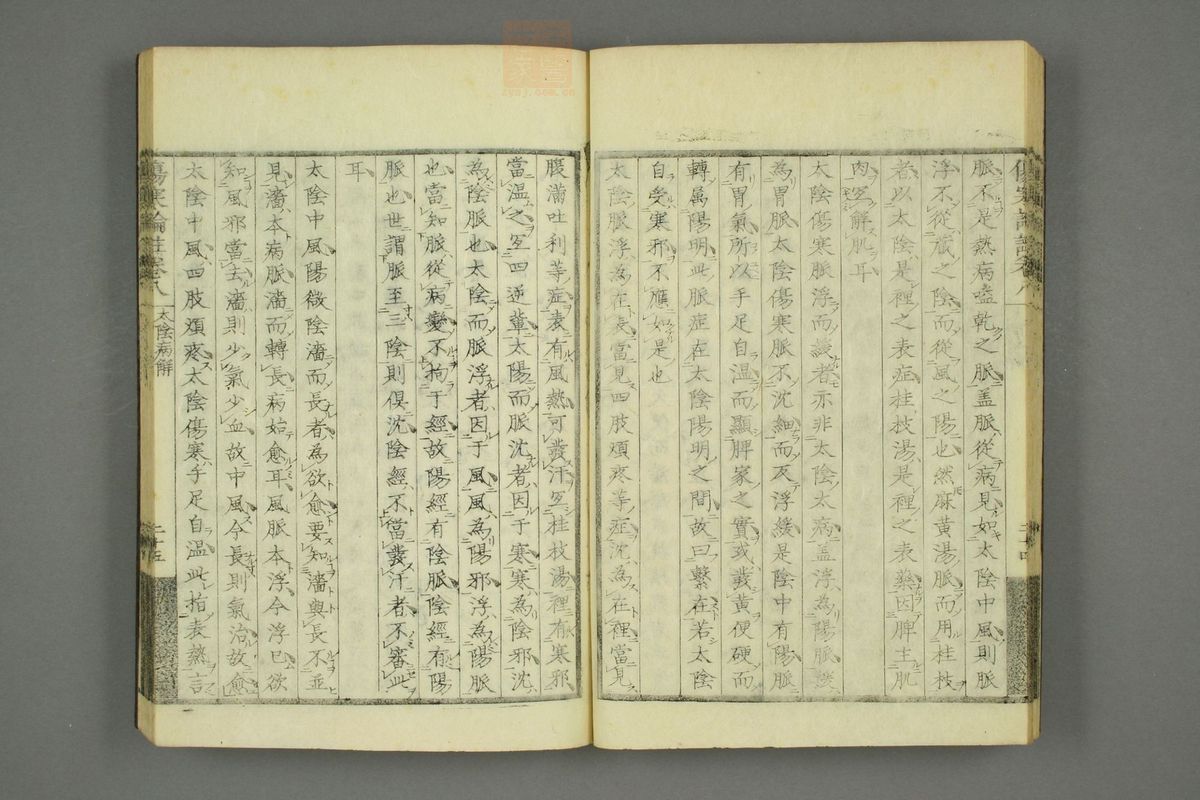 脈不是熱病嗌乾之脈盖脈從病見如太陰中風則脈
浮不從蔵之陰而從風之陽也然麻黄湯脈而用桂枝
者以太陰是裡之表症桂枝湯是裡之表藥因脾主肌
肉冝解肌耳
太陰傷寒脈浮而緩者亦非太陰太病盖浮為陽脈緩
為胃脈太陰傷寒脈不沈細而反浮緩是陰中有陽脈
有胃氣所以手足自温而顯脾家之實或發黄便硬而
轉属陽明此脈症在太陰陽明之間故曰繫在若太陰
自受寒邪不應如是也
太陰脈浮為在表當見四肢煩疼等症沈為在裡當見
腹滿吐利等症表有風熱可發汗冝桂枝湯裡有寒邪
當温之冝四逆輩太陽而脈沈者因于寒寒為陰邪沈
為陰脈也太陰而脈浮者因于風風為陽邪浮為陽脈
也當知脈從病變不拘于經故陽經有陰脈陰經有陽
脈也世謂脈至三陰則俱沈陰經不當發汗者不審此
耳
太陰中風陽微陰濇而長者為欲愈要知濇與長不並
見濇本病脈濇而轉長病始愈耳風脈本浮今浮已欲
知風邪當去濇則少氣少血故中風今長則氣治故愈
太陰中風四肢煩疼太陰傷寒手足自温此指表熱言
傷寒論註卷八
太陰病解
二十五
二十四